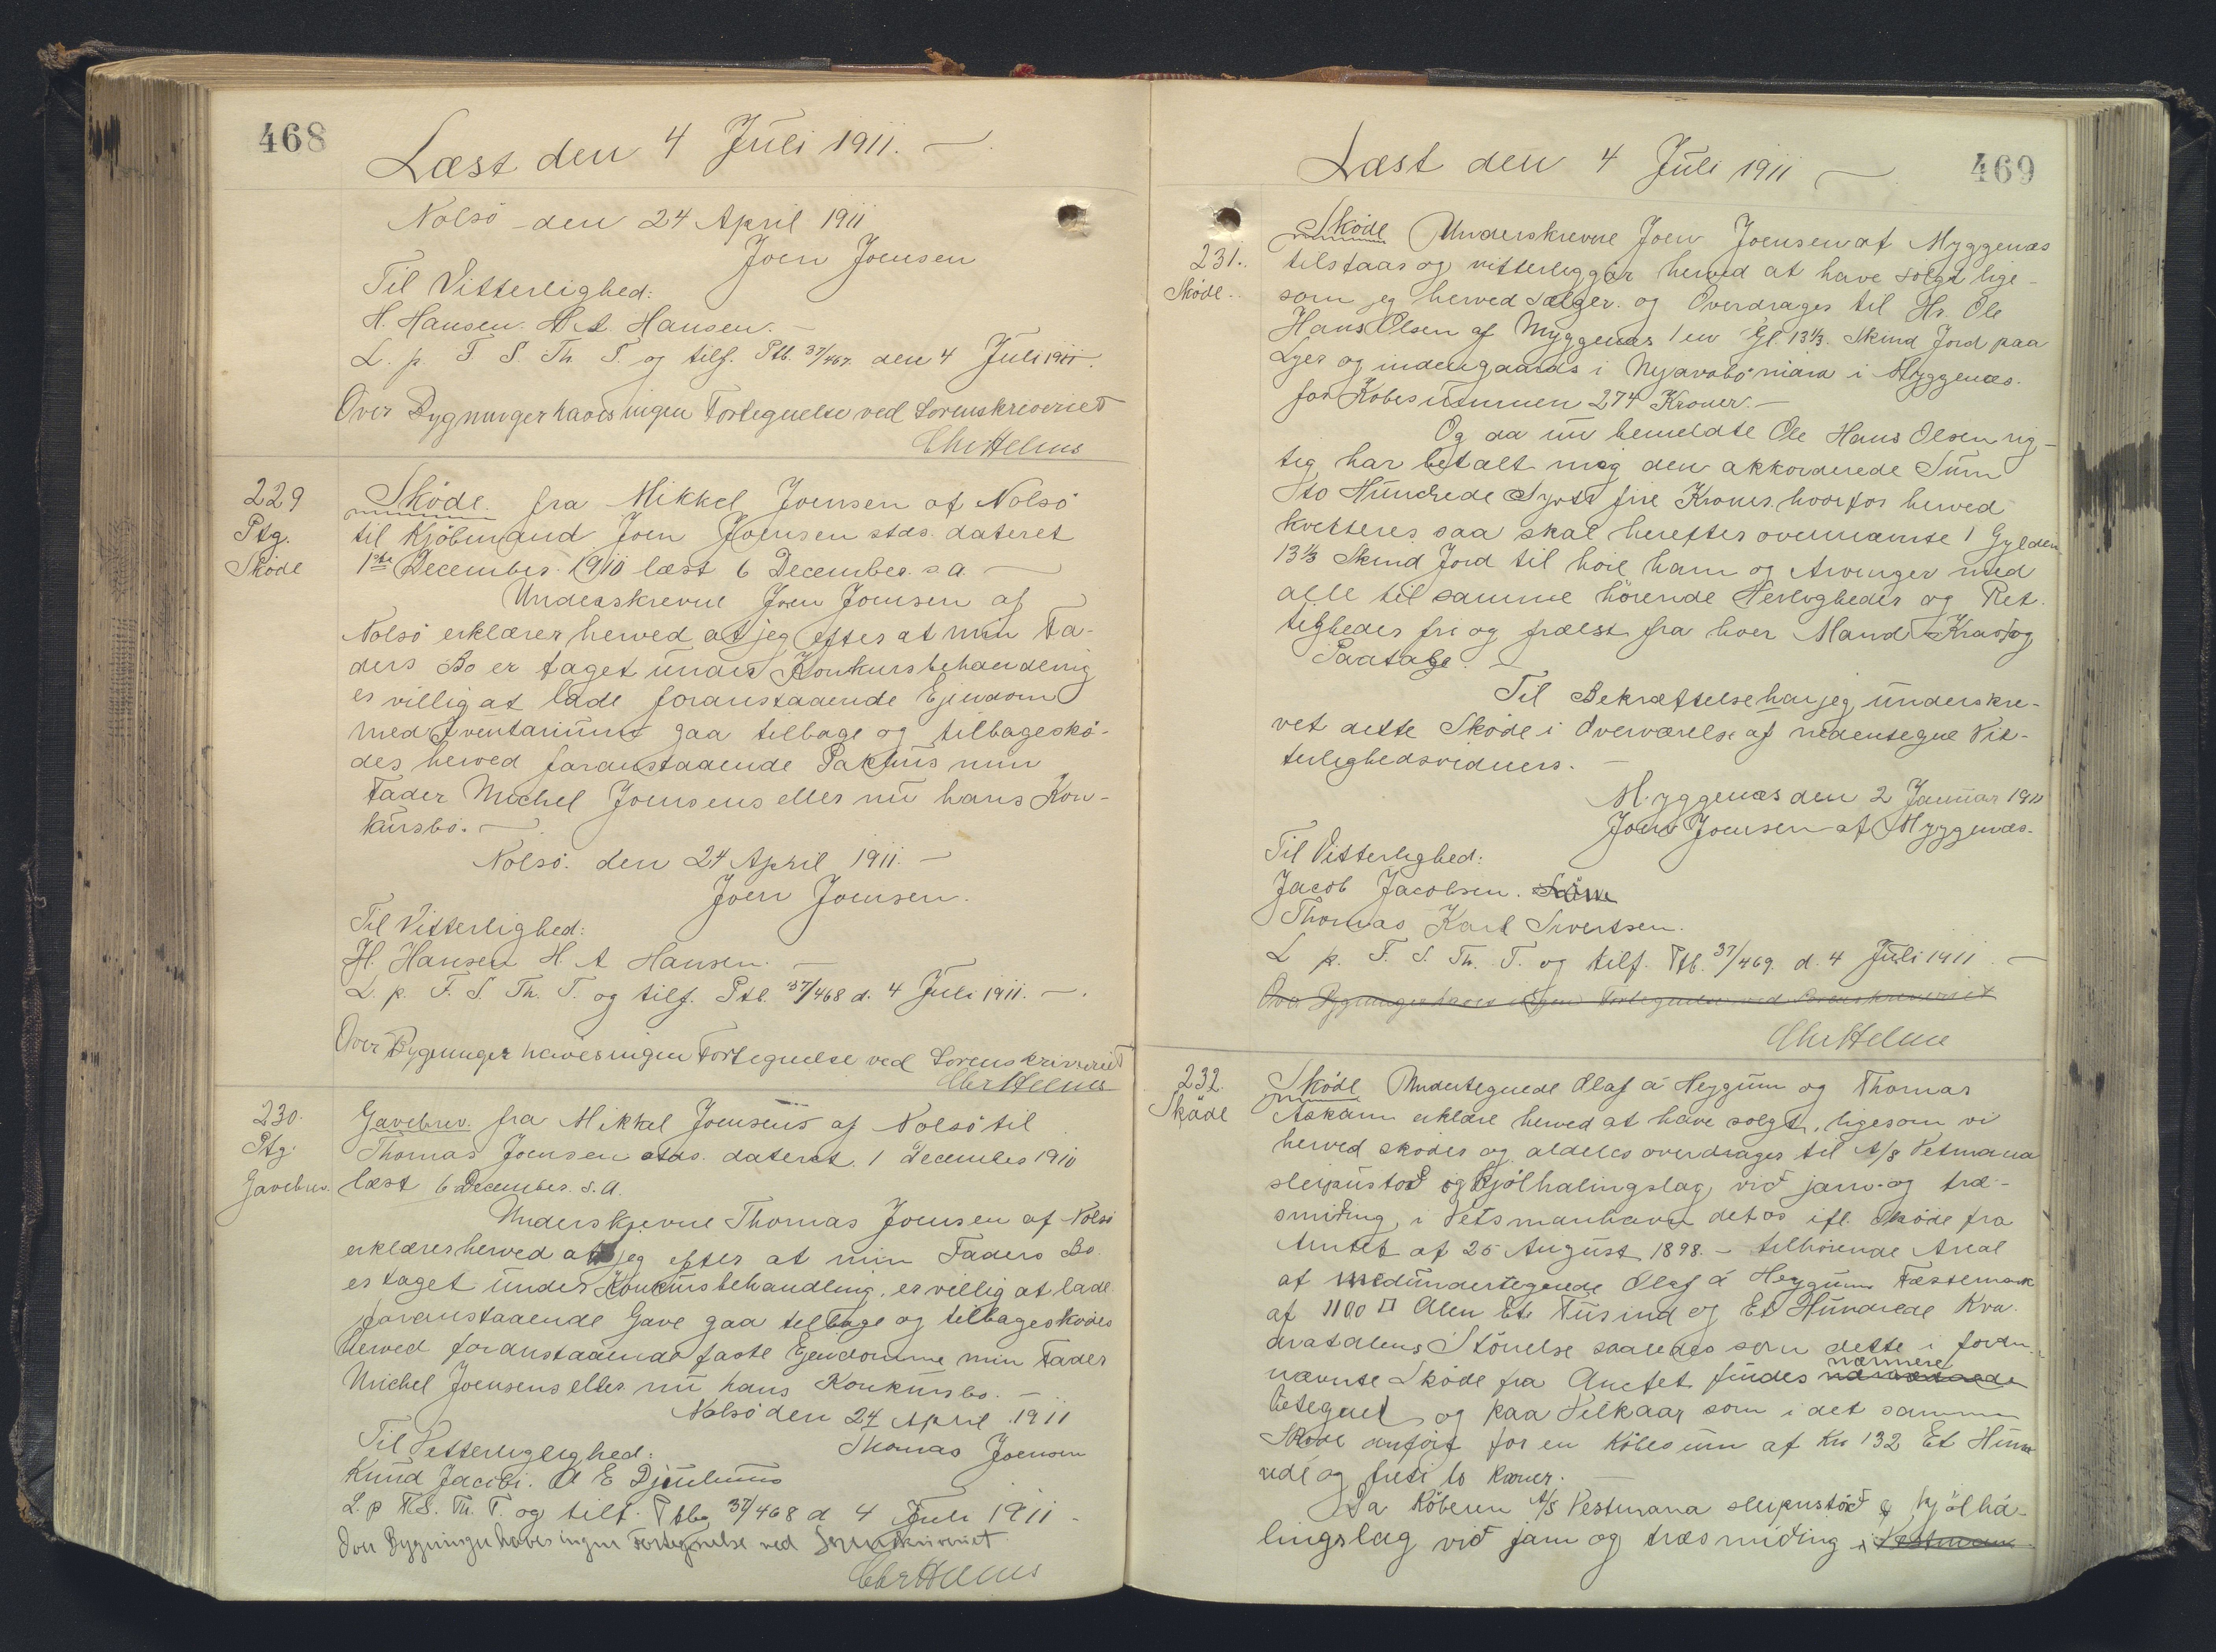 468
Læst den 4 Juli 1911.
Nolsö den 24 April 1911
Joen Joensen
Til Vitterlighed:
H. Hansen. H. A. Hansen.
L. p. F. S. Th. T. og tilf. Ptb. 37/467. den 4 Juli 1911.
Over Bygninger haves ingen Fortegnelse ved Sorenskriveriet
Chr Helms
229
Ptg.
Sköde
Sköde. fra Mikkel Joensen af Nolsö
til Kjöbmand Joen Joensen stds. dateret
1ste December 1910 læst 6 December s. a.
Underskrevne Joen Joensen af
Nolsö erklærer herved at jeg efter at min Fa-
ders Bo er taget under Konkursbehandling
er villig at lade foranstaaende Ejendom
med Inventarium gaa tilbage og tilbageskö-
des herved foranstaaende Pakhus min
Fader Michel Joensens eller nu hans Kon-
kursbo.
Nolsö. den 24 April 1911.
Joen Joensen.
Til Vitterlighed:
H. Hansen H. A Hansen.
L. p. F. S. Th. T. og tilf. Ptb. 37/468 d. 4 Juli 1911.
Over Bygninger haves ingen Fortegnelse ved Sorenskriveriet
Chr Helms
230.
Ptg.
Gavebrev.
Gavebrev. fra Mikkel Joensens af Nolsö til
Thomas Joensen stds. dateret. 1 December 1910
læst 6 December. s. a.
Underskrevne Thomas Joensen af Nolsö
erklærer herved at jeg efter at min Faders Bo
er taget under Konkursbehandling, er villig at lade
foranstaaende Gave gaa tilbage og tilbagesködes
herved foranstaaende faste Ejendomme min Fader
Michel Joensens eller nu hans Konkursbo.
Nolsö den 24 April 1911
Til Vitterliglighed: Thomas Joensen
Knud Jacobi. A E Djurhuus
L. p F. S. Th. T. og tilf. Ptbg 37/468 d 4 Juli 1911
Over Bygninger haves ingen Fortegnelse ved Sorenskriveriet
Chr Helms
Læst den 4 Juli 1911
469
231.
Sköde.
Sköde Underskrevne Joen Joensen af Myggenæs
tilstaar og vitterliggör herved at have solgt lige-
som jeg herved sælger og Overdrager til Hr. Ole
Hans Olsen af Myggenæs 1 en Gl. 13⅓. Skind Jord paa
Lyer og indengaards i i Myggenæs.
for Köbesummen 274 Kroner.
Og da nu bemeldte Ole Hans Olsen rig-
tig har betalt mig den akkorderede Sum
to Hundrede Syvti fire Kroner. hvorfor herved
kvitteres saa skal herefter ovennævnte 1 Gylden
13⅓ Skind Jord til höre ham og Arvinger med
alle til samme hörende Herligheder og Ret-
tigheder fri og frælst fra hver Mand Krav og
Paatale.
Til Bekræftelse har jeg underskre-
vet dette Sköde i Overværelse af nedentegne Vit-
terlighedsvidners.
Myggenæs den 2 Januar 1911
Joen Joensen af Myggenæs.
Til Vitterlighed:
Jacob Jacobsen.
Thomas Karl Sivertsen.
L p. F. S. Th. T. og tilf. Ptb. 37/469. d. 4 Juli 1911.
Over Bygninger haves ingen Fortegnelse ved Sorenskriveriet
Chr Helms
232.
Sköde
Sköde Undertegnede Olaf á Heygum og Thomas
Askam erklære herved at have solgt, ligesom vi
herved sköder og aldeles overdrager til A/S Vestmana
sleipustöð og Kjölhalingslag við jarn- og træ-
smiðing, i Vestmanhavn det os ifl. Sköde fra
Amtet af 25 August 1898. - tilhörende Areal
af medundertegnede Olaf á Heygums Fæstemark
af 1100 □ Alen Et Tusind og Et Hundrede Kva-
dratalens Störrelse saaledes som dette i foran-
nævnte Sköde fra Amtet findes nærmere
betegnet og paa Vilkaar som i det samme
Sköde anfört for en Köbesum af Kr 132 Et Hund
rede og treti to Kroner.
Da Köberen A/S Vestmana sleipustöð & kjölhá-
lingslag við jarn og træsmiðing i Vestman